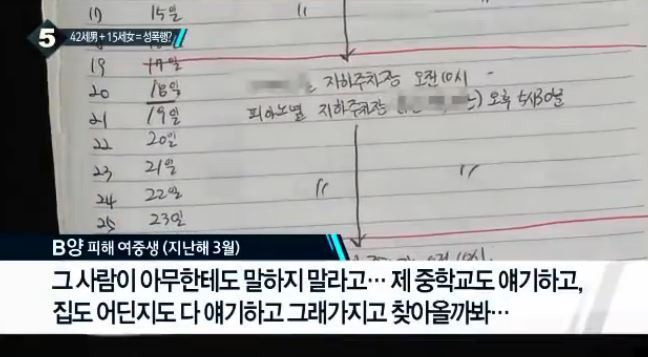 5 42세男+15세女=성폭행?
17 15일 〃
19 17일
20 18일 지하주차장 오전 10시
21 19일 피아노옆 지하주차장 ) 오후 5시30분
22 20일
23 21일 〃
24 22일 〃
25 23일
B양 피해 여중생 (지난해 3월)
그 사람이 아무한테도 말하지 말라고… 제 중학교도 얘기하고,
집도 어딘지도 다 얘기하고 그래가지고 찾아올까봐…